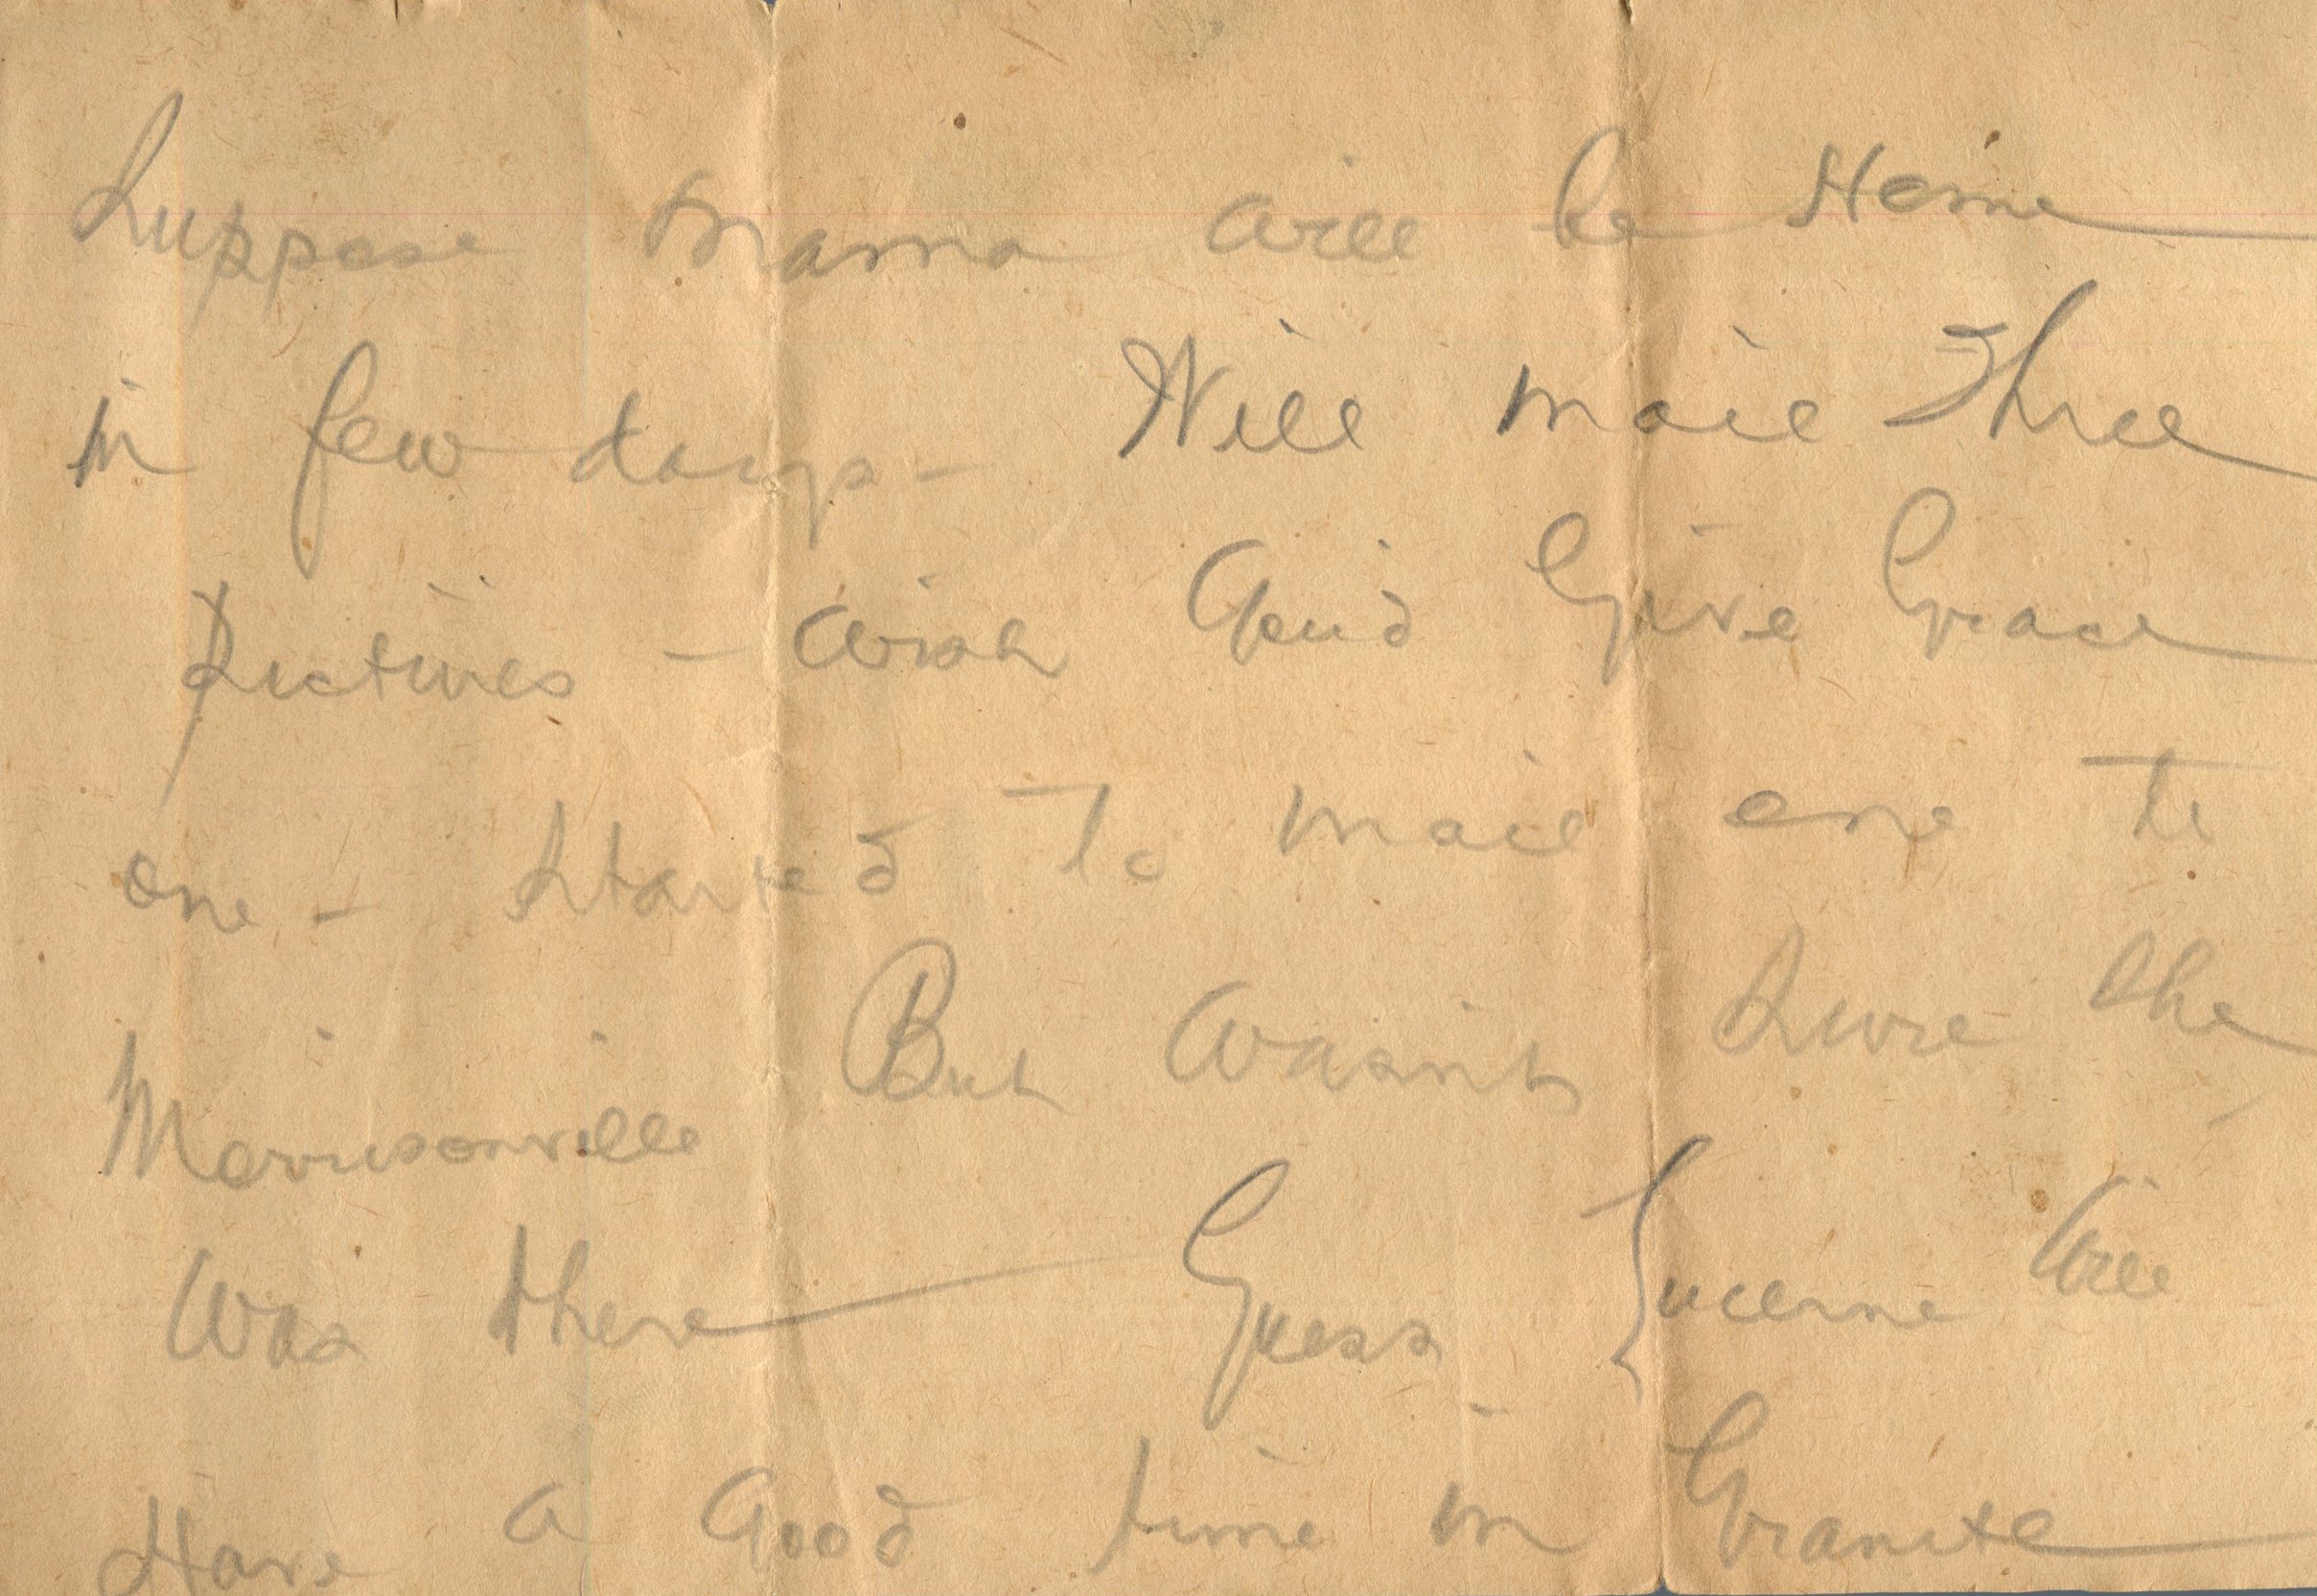 Suppose Mama will be Home
in few days - Will mail Three
Pictures - wish you'd Give Grace
one - Started To mail one to
Morrisonville But wasn't Sure she
was there Guess Lucerne will
Have a Good time in Granite